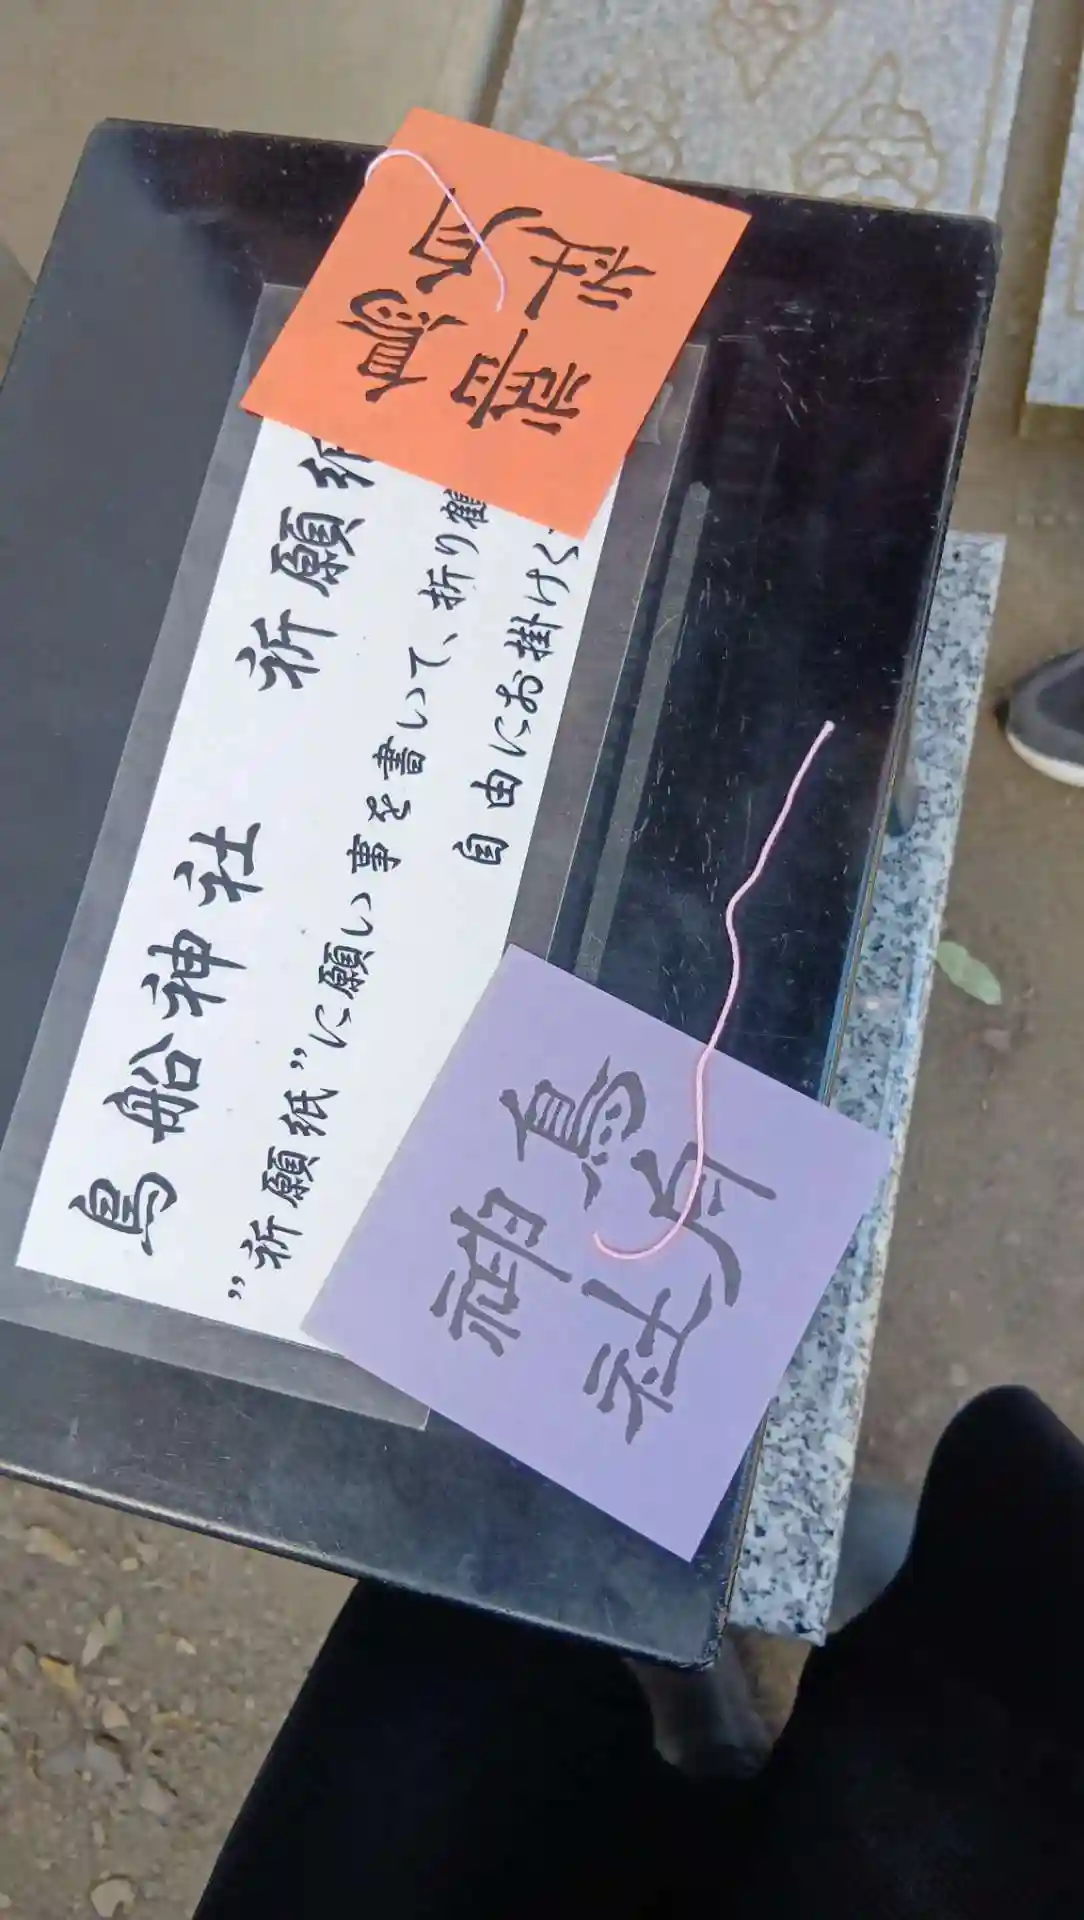 鳥船神社 祈願
”祈願紙”に願い事を書いて、折り鶴
自由にお掛けく
鳥船
神社
鳥船
神社